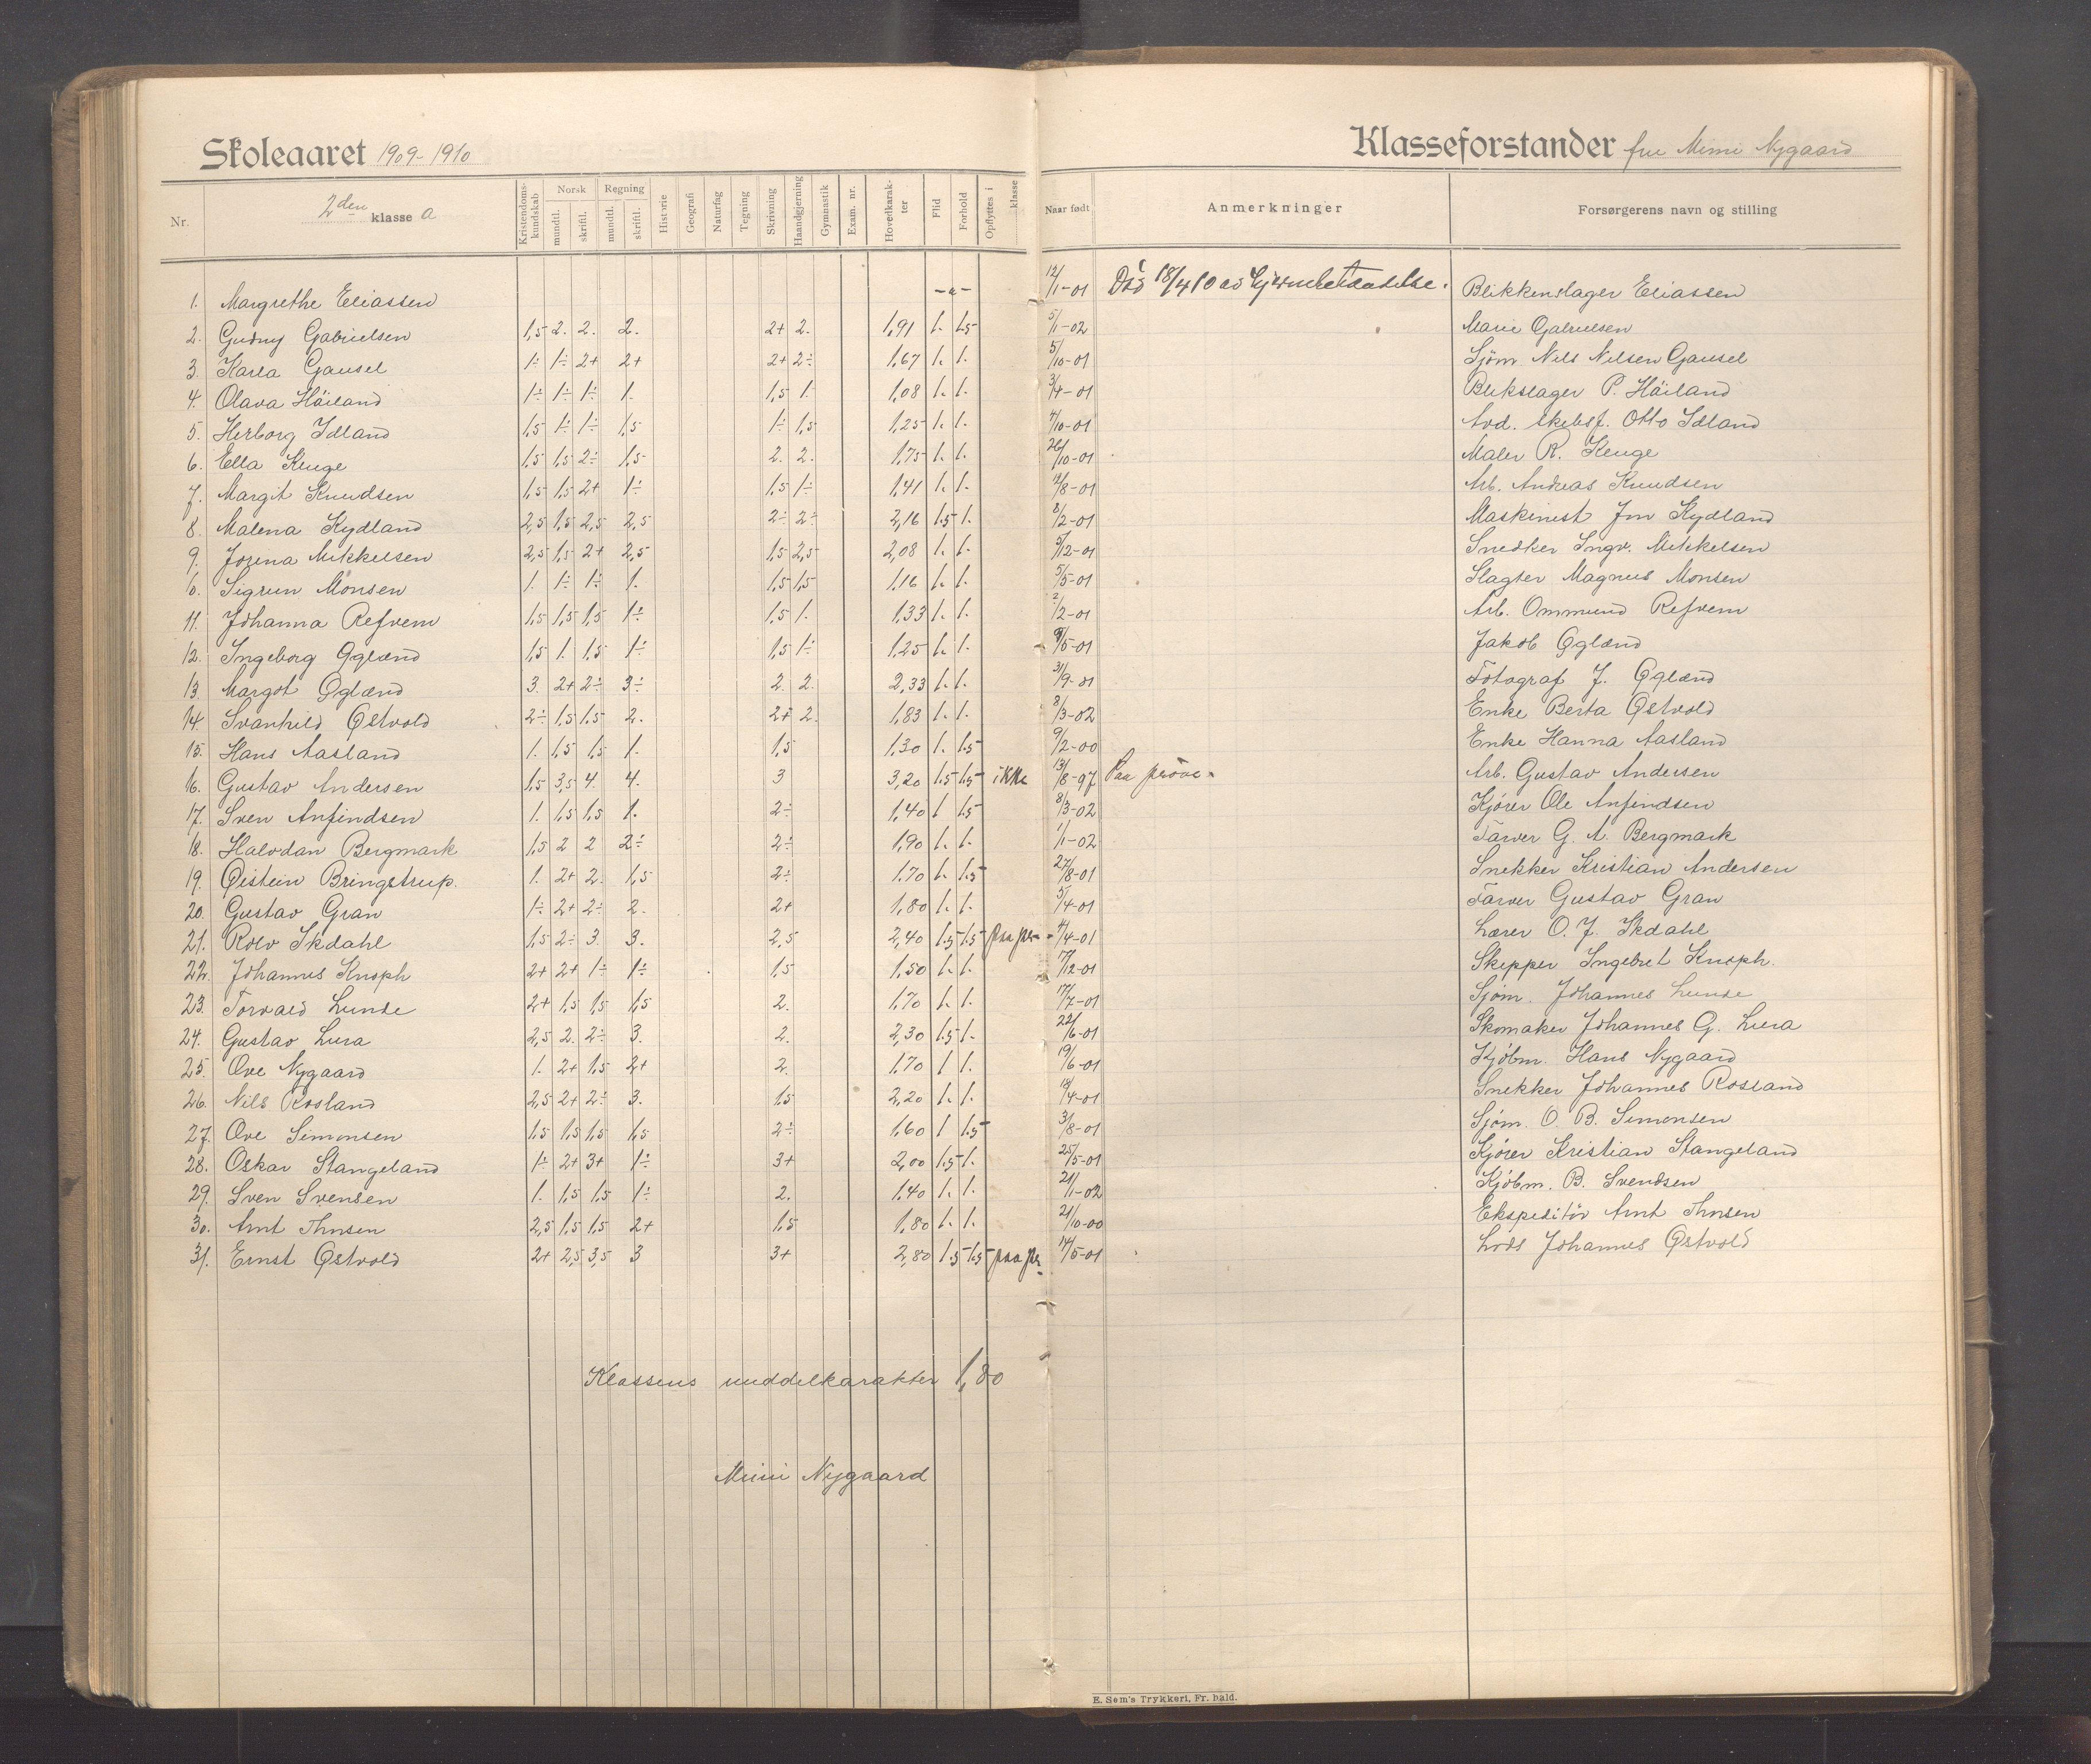 Skoleaaret 1909-1910
Klasseforstander fru Mimi Nygaard
Nr. 2den klasse a Kristendomskundskab Norsk mundtl. skriftl. Regning mundtl. skriftl. Historie Geografi Naturfag Tegning Skrivning Haandgjerning Gymnastik Exam. nr. Hovedkarakter Flid Forhold Opflyttes i klasse Naar født Anmerkninger Forsørgerens navn og stilling
1. Margrethe Eliassen -"- 12/1-01 Død 18/4 10 av Blikkenslager Eliassen
2. Gudny Gabrielsen 1,5 2. 2. 2. 2+ 2. 1,91 1. 1.5 5/1-02 Marie Gabrielsen
3. Karla Gausel 1÷ 1÷ 2+ 2+ 2+ 2÷ 1,67 1. 1. 5/10-01 Sjøm Nils Nilsen Gausel
4. Olava Håiland 1÷ 1÷ 1÷ 1. 1,5 1. 1,08 1. 1. 3/4-01 Blikslager P. Håiland
5. Herborg Idland 1,5 1÷ 1÷ 1,5 1÷ 1,5 1,25 1. 1. 4/10-01 Avd. skibsf. Otto Idland
6. Ella Kluge 1,5 1,5 2÷ 1,5 2. 2. 1,75 1. 1. 26/10-01 Maler R. Kluge
7. Margit Knudsen 1,5 1,5 2+ 1÷ 1,5 1÷ 1,41 1. 1. 12/8-01 Arb. Andreas Knudsen
8. Malena Kydland 2,5 1,5 2,5 2,5 2÷ 2÷ 2,16 1.5 1. 8/2-01 Maskinist Jon Kydland
9. Jorina Mikkelsen 2,5 1,5 2+ 2,5 1,5 2,5 2,08 1. 1. 5/12-01 Snedker Ingv. Mikkelsen
10. Sigrun Monsen 1. 1÷ 1÷ 1. 1,5 1,5 1,16 1. 1. 5/5-01 Slagter Magnus Monsen
11. Johanna Refvem 1,5 1,5 1,5 1÷ 1,5 1. 1,33 1. 1. 2/2-01 Arb. Ommund Refvem
12. Ingeborg Øglænd 1,5 1. 1,5 1÷ 1,5 1÷ 1,25 1. 1. 9/5-01 Jakob Øglænd
13. Margot Øglænd 3. 2+ 2÷ 3÷ 2. 2. 2,33 1. 1. 31/9-01 Fotograf J. Øglænd
14. Svanhild Østvold 2÷ 1,5 1,5 2. 2+ 2. 1,83 1. 1. 8/3-02 Enke Berta Østvold
15. Hans Aasland 1. 1,5 1,5 1. 1,5 1,30 1. 1.5 9/2-00 Enke Hanna Aasland
16. Gustav Andersen 1,5 3,5 4. 4. 3 3,20 1.5 1.5 ikke 13/8-97 Paa prøve. Arb. Gustav Andersen
17. Sven Anfindsen 1. 1,5 1,5 1. 2÷ 1,40 1 1.5 8/3-02 Kjører Ole Anfindsen
18. Halvdan Bergmark 1,5 2 2 2÷ 2÷ 1,90 1. 1. 1/1-02 Farver G. A. Bergmark
19. Øistein Bringstrup. 1. 2+ 2. 1,5 2÷ 1,70 1. 1.5 27/8-01 Snekker Kristian Andersen
20. Gustav Gran 1÷ 2+ 2÷ 2. 2+ 1,80 1. 1. 5/4-01 Farver Gustav Gran
21. Rolv Ikdahl 1,5 2÷ 3. 3. 2,5 2,40 1.5 1.5 paa pr. 4/4-01 Lærer O. J. Ikdahl
22. Johannes Knoph 2+ 2+ 1÷ 1÷ 1,5 1,50 1. 1. 17/12-01 Skipper Ingebret Knoph.
23. Torvald Lunde 2+ 1,5 1,5 1,5 2. 1,70 1. 1. 17/7-01 Sjøm. Johannes Lunde
24. Gustav Lura 2,5 2. 2÷ 3. 2. 2,30 1.5 1. 22/6-01 Skomaker Johannes G. Lura
25. Ove Nygaard 1. 2+ 1,5 2+ 2. 1,70 1 1. 19/6-01 Kjøbm. Hans Nygaard
26. Nils Rosland 2,5 2+ 2÷ 3. 1,5 2,20 1. 1. 18/4-01 Snekker Johannes Rosland
27. Ove Simonsen 1,5 1,5 1,5 1,5 2÷ 1,60 1 1.5 3/8-01 Sjøm. O. B. Simonsen
28. Oskar Stangeland 1÷ 2+ 3+ 1÷ 3+ 2,00 1.5 1. 25/5-01 Kjører Kristian Stangeland
29. Sven Svensen 1. 1,5 1,5 1÷ 2. 1,40 1. 1. 21/1-02 Kjøbm. B. Svendsen
30. Arnt Thnsen 2,5 1,5 1,5 2+ 1,5 1,80 1. 1. 21/10-00 Ekspeditör Arnt Thnsen
31. Ernst Østvold 2+ 2,5 3,5 3 3+ 2,80 1.5 1.5 paa pr. 14/5-01 Lods Johannes Østvold
Klassens middelkarakter 1,80
Mimi Nygaard
E. Sem's Trykkeri, Fr. hald.